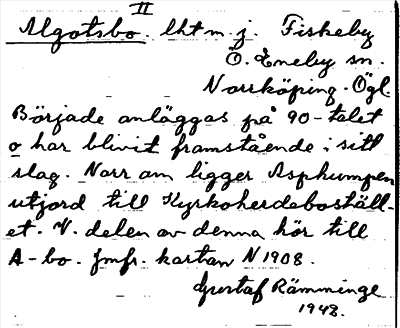 II
Algotsbo. lht m. j. Fiskeby
Ö. Eneby sn.
Norrköping. Ögl.
Började anläggas på 90-talet
o har blivit framstående i sitt
slag. Norr om ligger Asphumpen
utjord till Kyrkoherdeboställ-
et. V. delen av denna hör till
A-bo. Jmfr. kartan N 1908.
Gustaf Rämminge
1948.